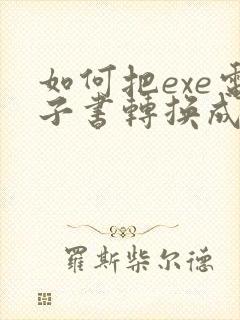 如何把exe電
子書轉換成
羅斯柴尔德